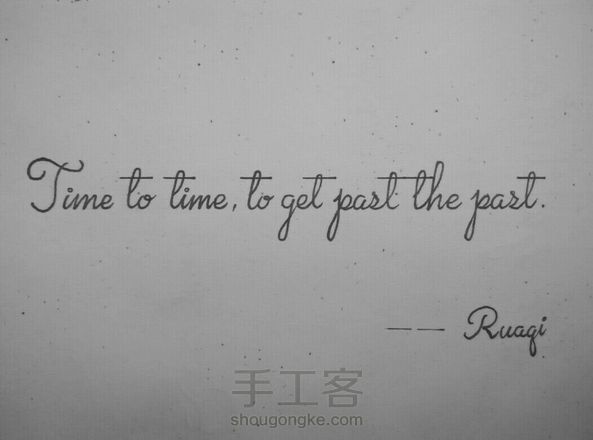 Time to time, to get past the past.
—— Ruaqi
手工客
shougongke.com